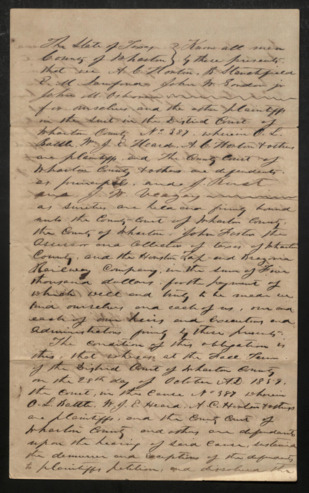 The State of Texas } Know all men
County of Wharton } by these presents
that we A. C. Horton, B. Stanchfield
John W. Gordon jr
for ourselves and the other plaintiffs
in the suit in the District Court of
Wharton County No 387. wherein O. L.
Battle, W. J. E. Heard, A. C. Horton & others
are plaintiffs, and The County Court of
Wharton County & others are defendants.
as principals, and J. Hurst
and J. W.
as sureties are held and firmly bound
unto the County Court of Wharton County
the County of Wharton. John Foster the
Assessor and Collector of taxes of Wharton
County, and the Houston Tap and Brazoria
Railway Company, in the sum of Four
thousand dollars, for the payment of
which, well and truly to be made we
bind ourselves and each of us, our and
each of our heirs and executors and
Administrators firmly by these presents.
The Condition of this obligation is
this, that whereas at the Fall Term
of the District Court of Wharton County
on the 28th day of October AD 1859.
the Court, in the Cause No 387 wherein
O. L. Battle, W. J. E. Heard, A. C. Horton & others
are plaintiffs, and the County Court of
Wharton County and others are defendants
upon the hearing of said cause, sustained
the demurrer and exceptions of the defendants
to plaintiffs petition, and dissolved the